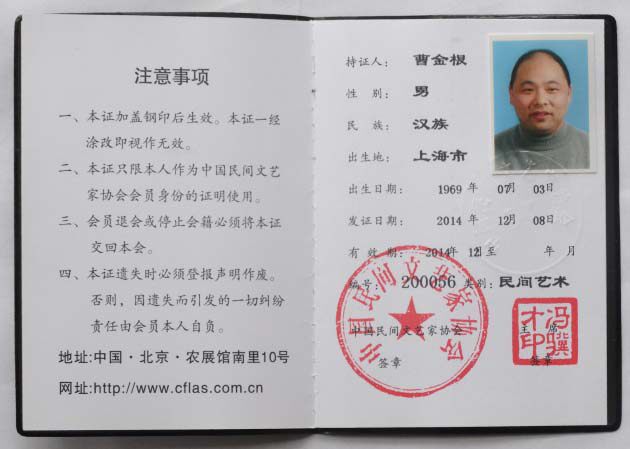 注意事项
一、本证加盖钢印后生效。本证一经
涂改即视作无效。
二、本证只限本人作为中国民间文艺
家协会会员身份的证明使用。
三、会员退会或停止会籍必须将本证
交回本会。
四、本证遗失时必须登报声明作废。
否则，因遗失而引发的一切纠纷
责任由会员本人自负。
地址:中国·北京·农展馆南里10号
网址:http://www.cflas.com.cn
持证人： 曹金根
性 别： 男
民 族： 汉族
出生地： 上海市
出生日期： 1969 年 07月 03日
发证日期： 2014 年 12月 08日
有 效 期： 2014年 12月至 年 月
编号： 200056 类别：民间艺术
中国民间文艺家协会 主 席
签章 签章
中国民间文艺家协会
冯骥才印